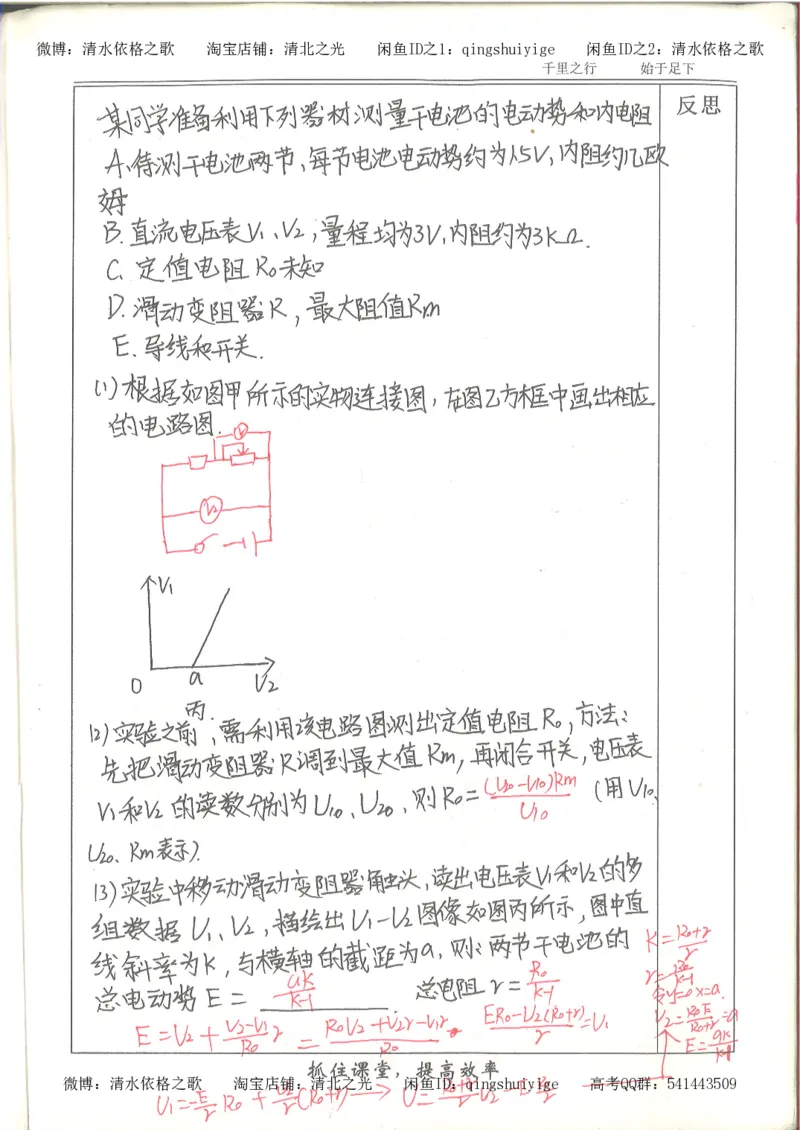 微博：清水依格之歌 淘宝店铺：清北之光 闲鱼ID之1：qingshuiyige 闲鱼ID之2：清水依格之歌
千里之行 始于足下
反思
某同学准备利用下列器材测量干电池的电动势和内电阻
A.待测干电池两节,每节电池电动势约为1.5V,内阻约几欧
姆
B.直流电压表V₁、V₂,量程均为3V,内阻约为3KΩ.
C.定值电阻R₀未知
D.滑动变阻器R,最大阻值Rm
E.导线和开关.
(1)根据如图甲所示的实物连接图,在图乙方框中画出相应
的电路图.
V₁
V₂
V₁
0 a V₂
丙.
(2)实验之前,需利用该电路图测出定值电阻R₀,方法:
先把滑动变阻器R调到最大值Rm,再闭合开关,电压表
V₁和V₂的读数分别为U₁₀、U₂₀,则R₀=(U₂₀-U₁₀)Rm/U₁₀ (用U₁₀、
U₂₀、Rm表示).
(3)实验中移动滑动变阻器触头,读出电压表V₁和V₂的多
组数据U₁、U₂,描绘出U₁-U₂图像如图丙所示,图中直
线斜率为K,与横轴的截距为a,则:两节干电池的
总电动势E=ak/k-1 总电阻r=R₀/k-1
K=R₀+r/r
r=R₀/k-1
令y=0 x=a.
U₂=R₀E/R₀+r=a
E=ak/k-1
E=U₂+U₂-U₁/R₀ r = R₀U₂+U₂r-U₁r/R₀ ER₀-U₂(R₀+r)/r=U₁
抓住课堂，提高效率
微博：清水依格之歌 淘宝店铺：清北之光 闲鱼ID：qingshuiyige 高考QQ群：541443509
U₁=-E/r R₀+U₂/r(R₀+r)